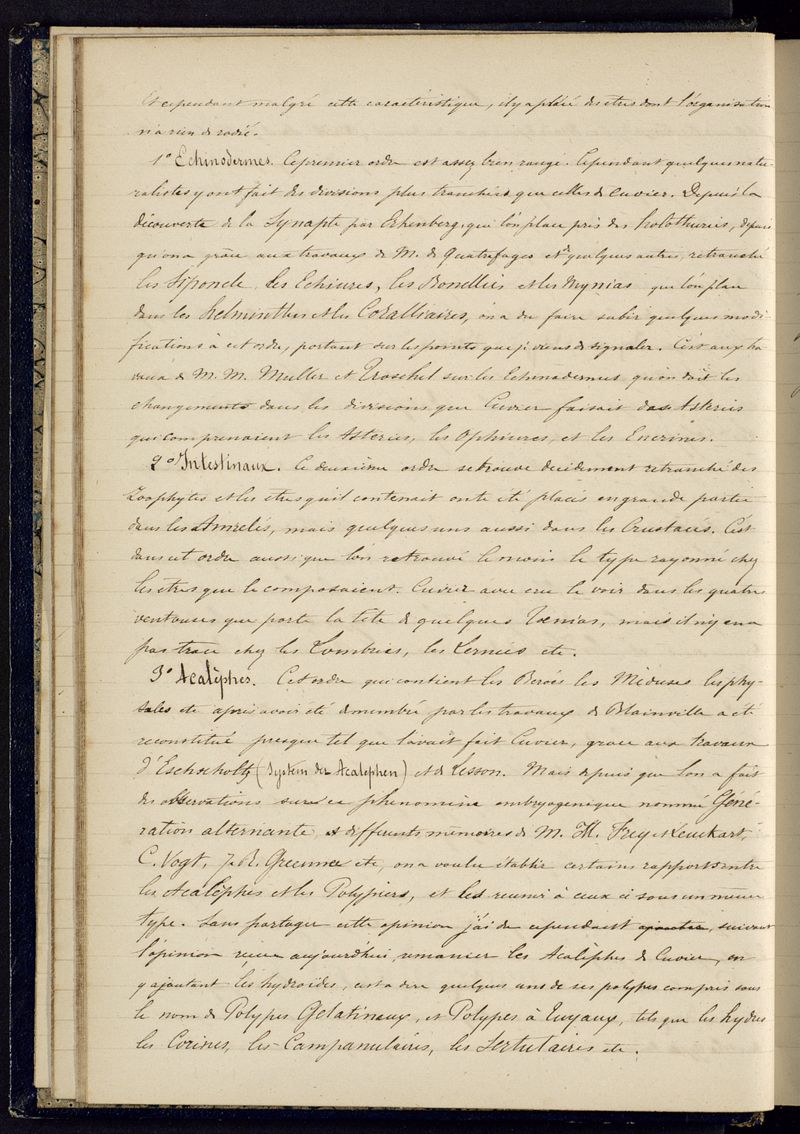 Et cependant malgré cette caractéristique, il y a placé des êtres dont l'organisation
n'a rien de radié.
1º Echinodermes. Ce premier ordre est assez bien rangé. Cependant quelques natu-
ralistes y ont fait des divisions plus tranchées que celles de Cuvier. Depuis la
découverte de la Synapte par Erhenberg, que l'on place près des holothuries, depuis
qu'on a grâce aux travaux de M. de Quatrefages et de quelques autres, retranché
les Siponcle, les Echiures, les Bonellies et les Mynias que l'on place
dans les helminthes et les Coralliaires, on a du faire subir quelques modi-
fications à cet ordre, portant sur les points que je viens de signaler. C'est aux tra-
vaux de M. M. Muller et Troschel sur les Echinodermes qu'on doit les
changements dans les divisions que Cuvier faisait des Asteries
qui comprenaient les Asteries, les Ophiures, et les Encrines.
2º Intestinaux. Ce deuxième ordre se trouve decidement retranché des
Zoophytes et les êtres qu'il contenait ont été placés en grande partie
dans les Annelés, mais quelques uns aussi dans les Crustacés. C'est
dans cet ordre aussi que l'on retrouve le moins le type rayonné chez
les êtres que le composaient. Cuvier avec cru le voir dans les quatre
ventouses que porte la tête de quelques Toenias, mais il n'y en a
pas trace chez les Lombrics, les Lernées etc.
3º Acalèphes. Cet ordre qui contient les Beroés les Méduses les phy-
sales etc après avoir été démembré par les travaux de Blainville a été
reconstitué presque tel que l'avait fait Cuvier, grace aux travaux
d'Eschscholtz (System der Acalephen) et de Lesson. Mais depuis que l'on a fait
des observations sur ce phenomène embryogenique nommé Géné-
ration alternante, et differents mémoires de M. H. Frey et Leuckart,
C. Vogt, J. R. Greenne etc, on a voulu établir certains rapports entre
les Acalèphes et les Polypiers, et les reunir à ceux ci sous un même
type. Sans partager cette opinion j'ai du cependant ajouter, suivant
l'opinion reçue aujourd'hui, remanier les Acalèphes de Cuvier, en
y ajoutant les hydroïdes, c'est a dire quelques uns de ses polypes compris sous
le nom de Polypes Gelatineux, et Polypes à Tuyaux, tels que les hydres
les Corines, les Campanulaires, les Sertulaires etc.